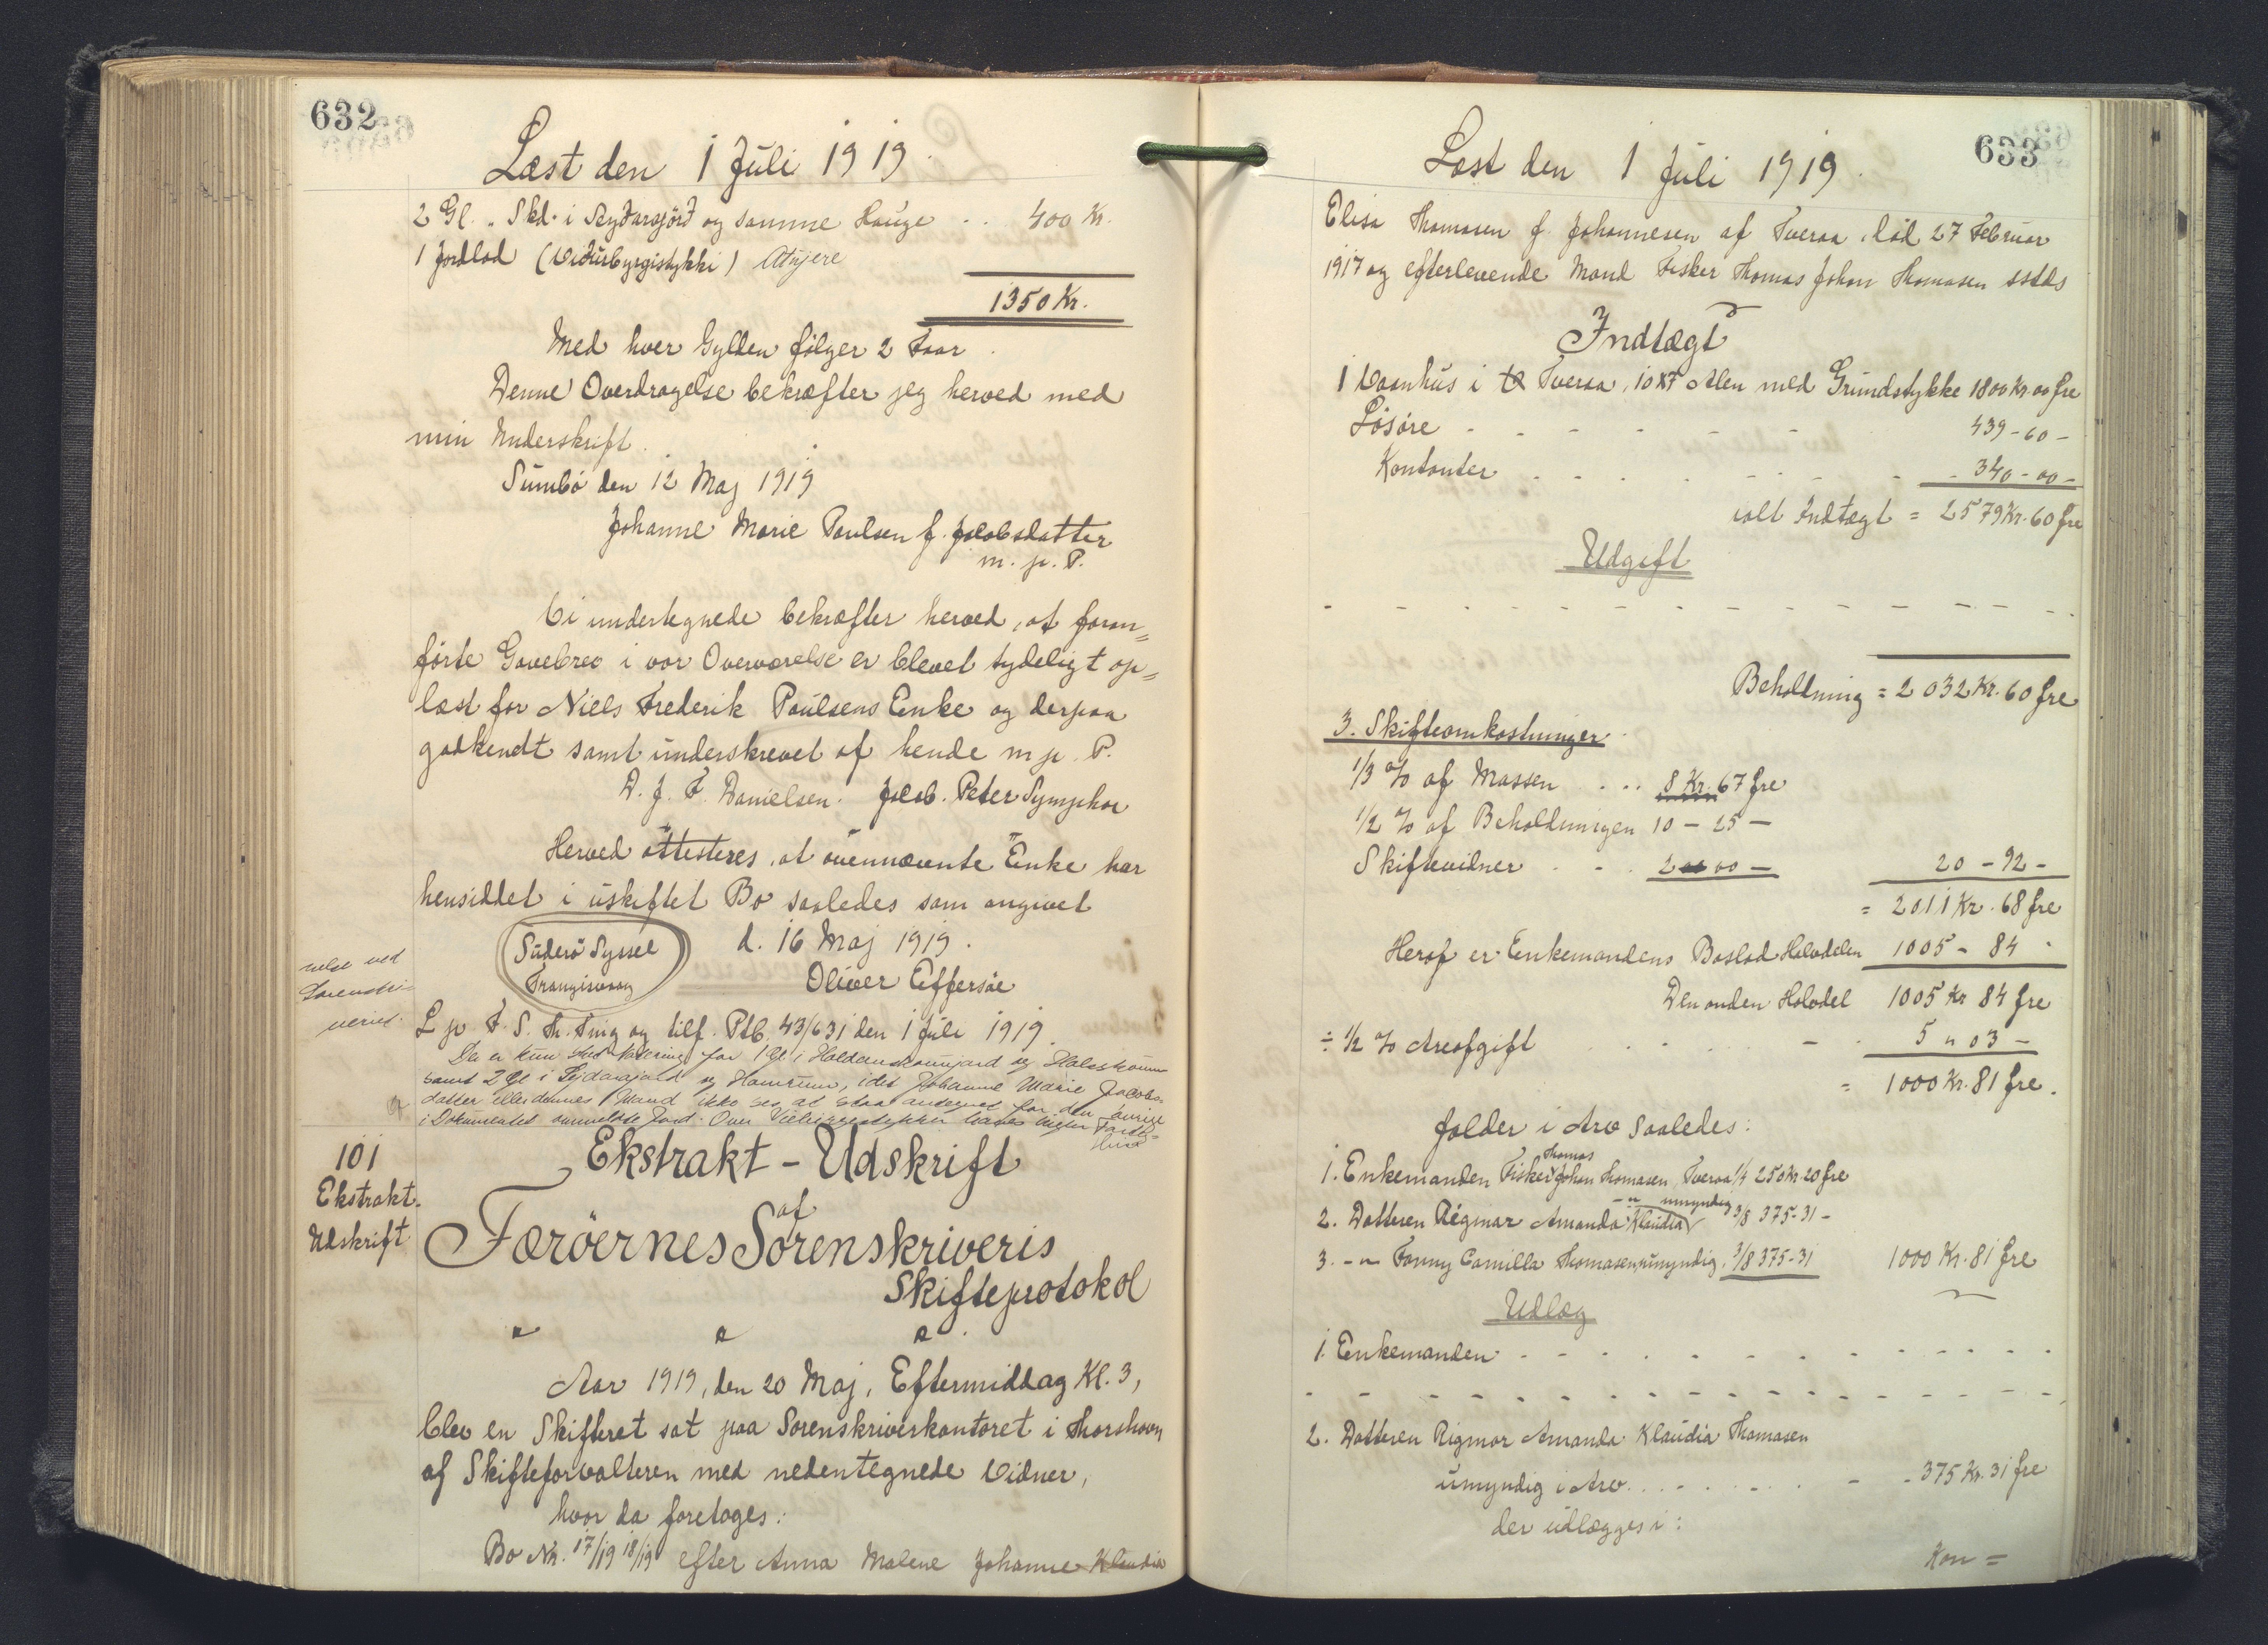 632
Læst den 1 Juli 1919.
2 Gl. „ Skd. i Seydargjörd og samme Hauge . . 400 Kr.
1 Jordlod (Vidurbyrgistykki) Atujere
1350 Kr.
Med hver Gylden følger 2 Faar.
Denne Overdragelse bekræfter jeg herved med
min Underskrift.
Sumbø den 12 Maj 1919
Johanne Marie Poulsen f. Jacobsdatter
m. p. P.
Vi undertegnede bekræfter herved, at foran=
førte Gavebrev i vor Overværelse er blevet tydeligt op=
læst for Niels Frederik Poulsens Enke og derpaa
godkendt samt underskrevet af hende m. p. P.
D. J. F. Danielsen. Jacob. Peter Symphor
Herved attesteres, at ovennævnte Enke har
hensiddet i uskiftet Bo saaledes som angivet
Süderø Syssel
Trangisvaag
d. 16 Maj 1919.
Oliver Effersøe
nelse ved
Sorenskri-
veriet.
L. p. F. S. Th. Ting og tilf. Ptb. 43/631 den 1 Juli 1919.
Der er kun for 1 Gl i og
samt 2 Gl i Sejdargjard og Hamrum, idet Johanne Marie Jacobs-
datter eller dennes Mand ikke ses at staa antegnet for den øvrige
i Dokumentet ommeldte Jord. Over haves ingen
101
Ekstrakt-
Udskrift
Ekstrakt - Udskrift
af
Færöernes Sorenskriveris
Skifteprotokol
" " "
Aar 1919, den 20 Maj, Eftermiddag Kl. 3,
blev en Skifteret sat paa Sorenskriverkontoret i Thorshavn
af Skifteforvalteren med nedentegnede Vidner,
hvor da foretoges:
Bo Nr. 17/19 18/19 efter Anna Malene Johanne Klaudia
633
Læst den 1 Juli 1919.
Elisa Thomasen f. Johannesen af Tveraa, død 27 Februar
1917 og efterlevende Mand Fisker Thomas Johan Thomasen sstds
Indtægt
1 Vaanhus i Tveraa, 10x7 Alen med Grundstykke 1800 Kr. 00 Øre
Løsøre - - - - - - 439 - 60 -
Kontanter . . . . . . . 340 - 00 -
ialt Indtægt = 2579 Kr. 60 Øre
Udgift
- - - - - - - - - - - - - - - -
Beholdning = 2032 Kr. 60 Øre
3. Skifteomkostninger
1/3 % af Massen . . . 8 Kr. 67 Øre
1/2 % af Beholdningen 10 - 25 -
Skiftevidner . . . 2 00 - 20 - 92 -
= 2011 Kr. 68 Øre
Heraf er Enkemandens Boslod Halvdelen 1005 - 84 -
Den anden Halvdel 1005 Kr 84 Øre
÷ 1/2 % Arveafgift . . . . . 5 " 03 -
= 1000 Kr. 81 Øre.
falder i Arv saaledes:
Thomas
1. Enkemanden Fisker Johan Thomasen, Tveraa 1/4 250 Kr. 20 Øre
- " - umyndig
2. Datteren Rigmar Amanda Klaudia 3/8 375 - 31 -
3. - " - Fanny Camilla Thomasen, umyndig. 3/8 375 - 31 1000 Kr. 81 Øre
Udlæg
1. Enkemanden - - - - - - - - - - - - -
- - - - - - - - - - - - - - - - - -
2. Datteren Rigmor Amanda Klaudia Thomasen
umyndig i Arv. . . . . . . . - - 375 Kr. 31 Øre
der udlægges i:
Kon =